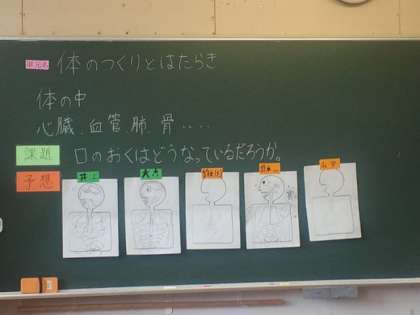 単元名 体のつくりとはたらき
体の中
心臓、血管、肺、骨‥‥
課題 口のおくはどうなっているだろうか。
予想